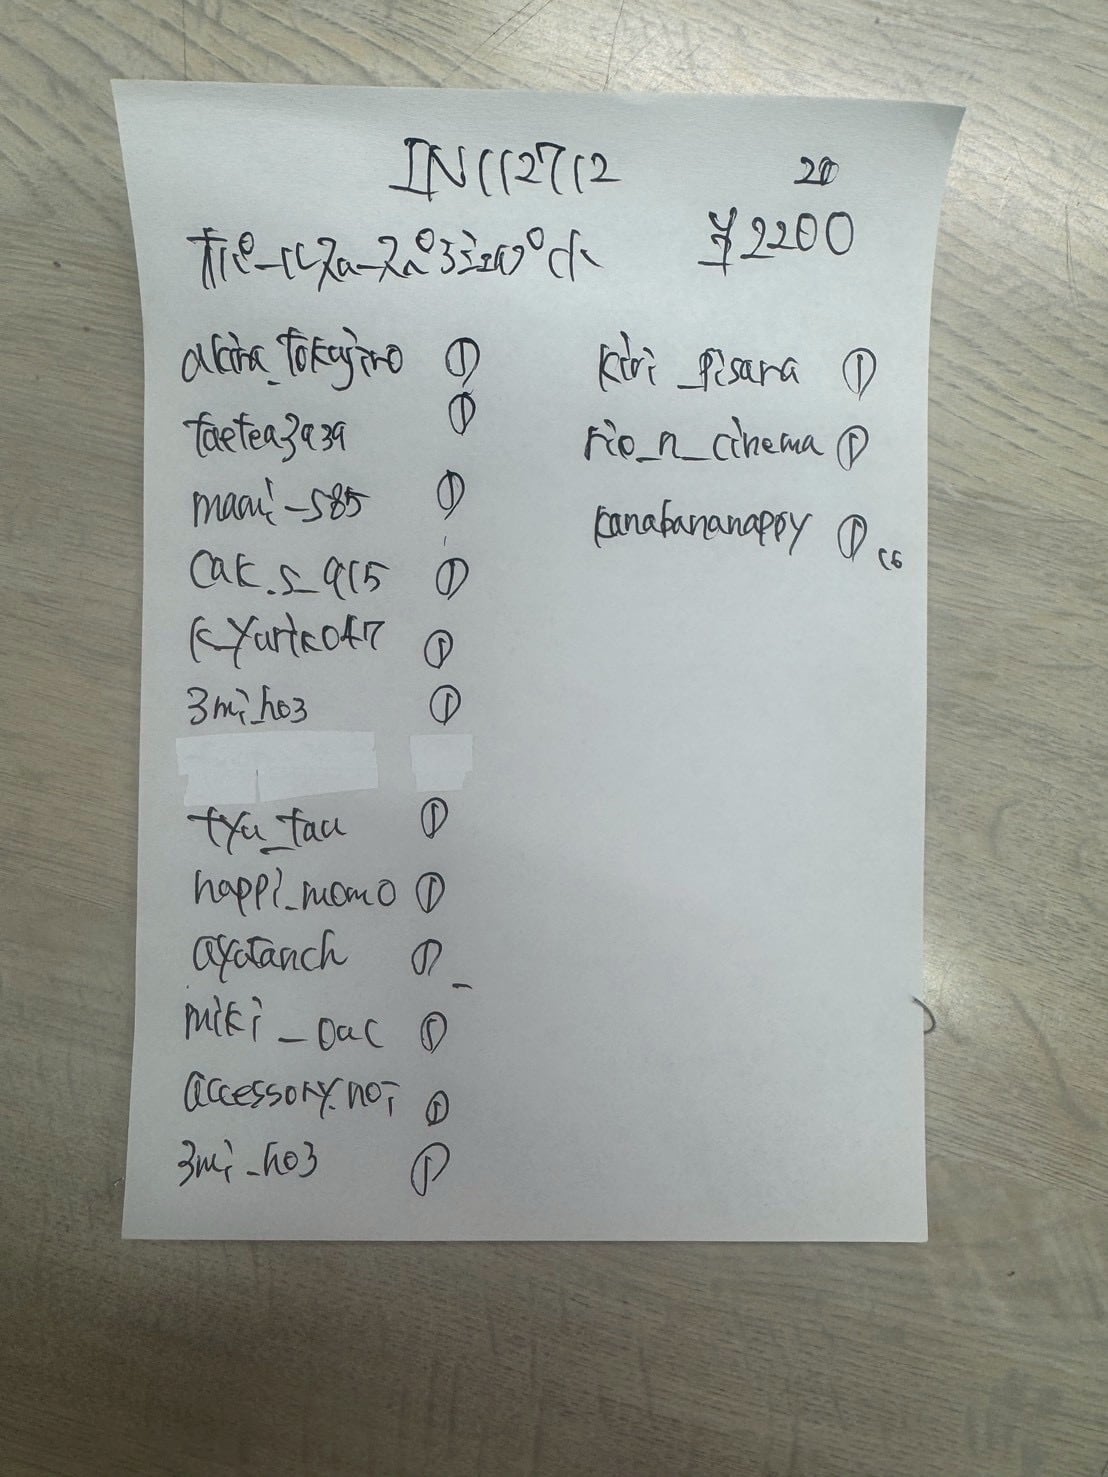 IN112712
20
¥2200
akira_tokajiro ①
taetea3a39 ①
mami_585 ①
cak.s_915 ①
k_yuriko47 ①
3mi_ho3 ①
tyu_tau ①
happi_momo ①
ayatanch ①
miki_oac ①
accessory.noi ①
3mi_ho3 ①
kiri_pisara ①
rio_n_cinema ①
kanabananappy ①
16